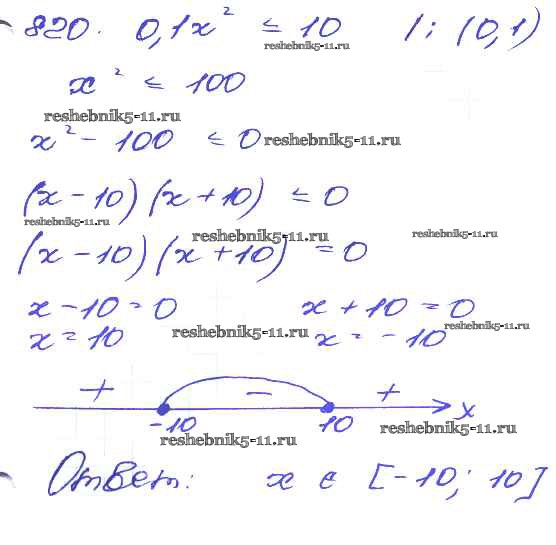 820. 0,1x² ≤ 10 /: (0,1)
reshebnik5-11.ru
x² ≤ 100
reshebnik5-11.ru
x² - 100 ≤ 0 reshebnik5-11.ru
(x - 10) (x + 10) ≤ 0
reshebnik5-11.ru
reshebnik5-11.ru reshebnik5-11.ru
(x - 10) (x + 10) = 0
x - 10 = 0 x + 10 = 0
reshebnik5-11.ru reshebnik5-11.ru
x = 10 x = - 10
+ - +
-10 10 x
reshebnik5-11.ru reshebnik5-11.ru
Ответ: x ∈ [-10; 10]